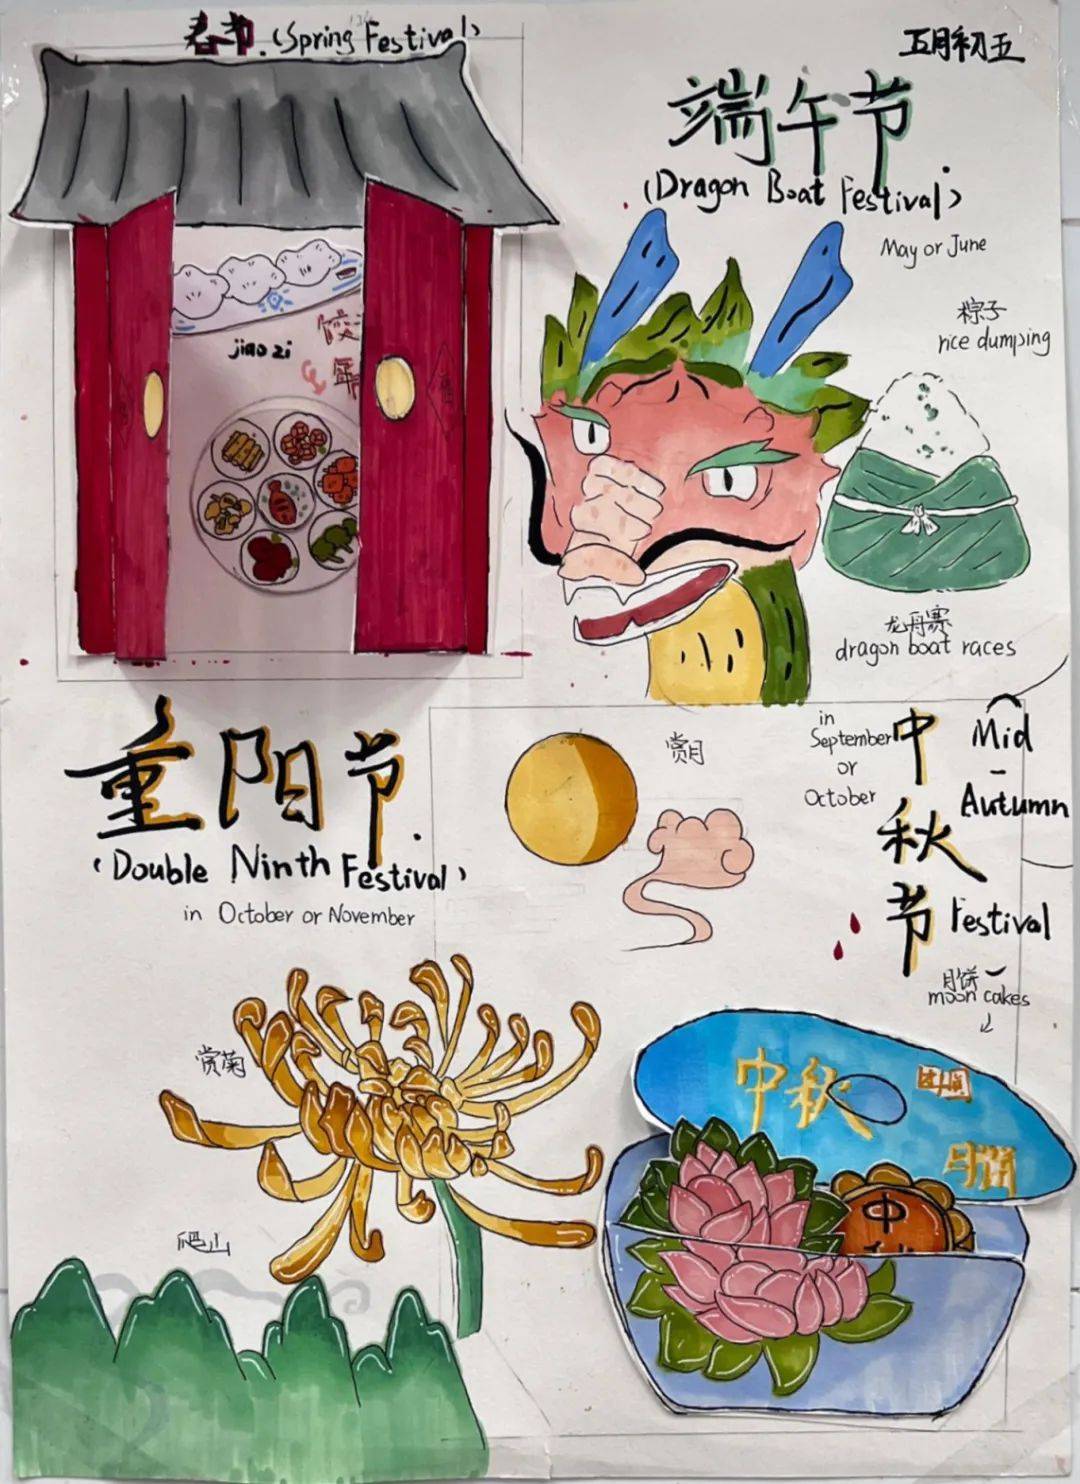 春节.(Spring Festival)
jiao zi
五月初五
端午节.
(Dragon Boat Festival)
May or June
粽子
rice dumping
龙舟赛
dragon boat races
重阳节.
(Double Ninth Festival)
in October or November
赏菊
爬山
赏月
in
September
or
October
中
秋
节
Mid
-
Autumn
Festival
月饼
moon cakes
中秋
中